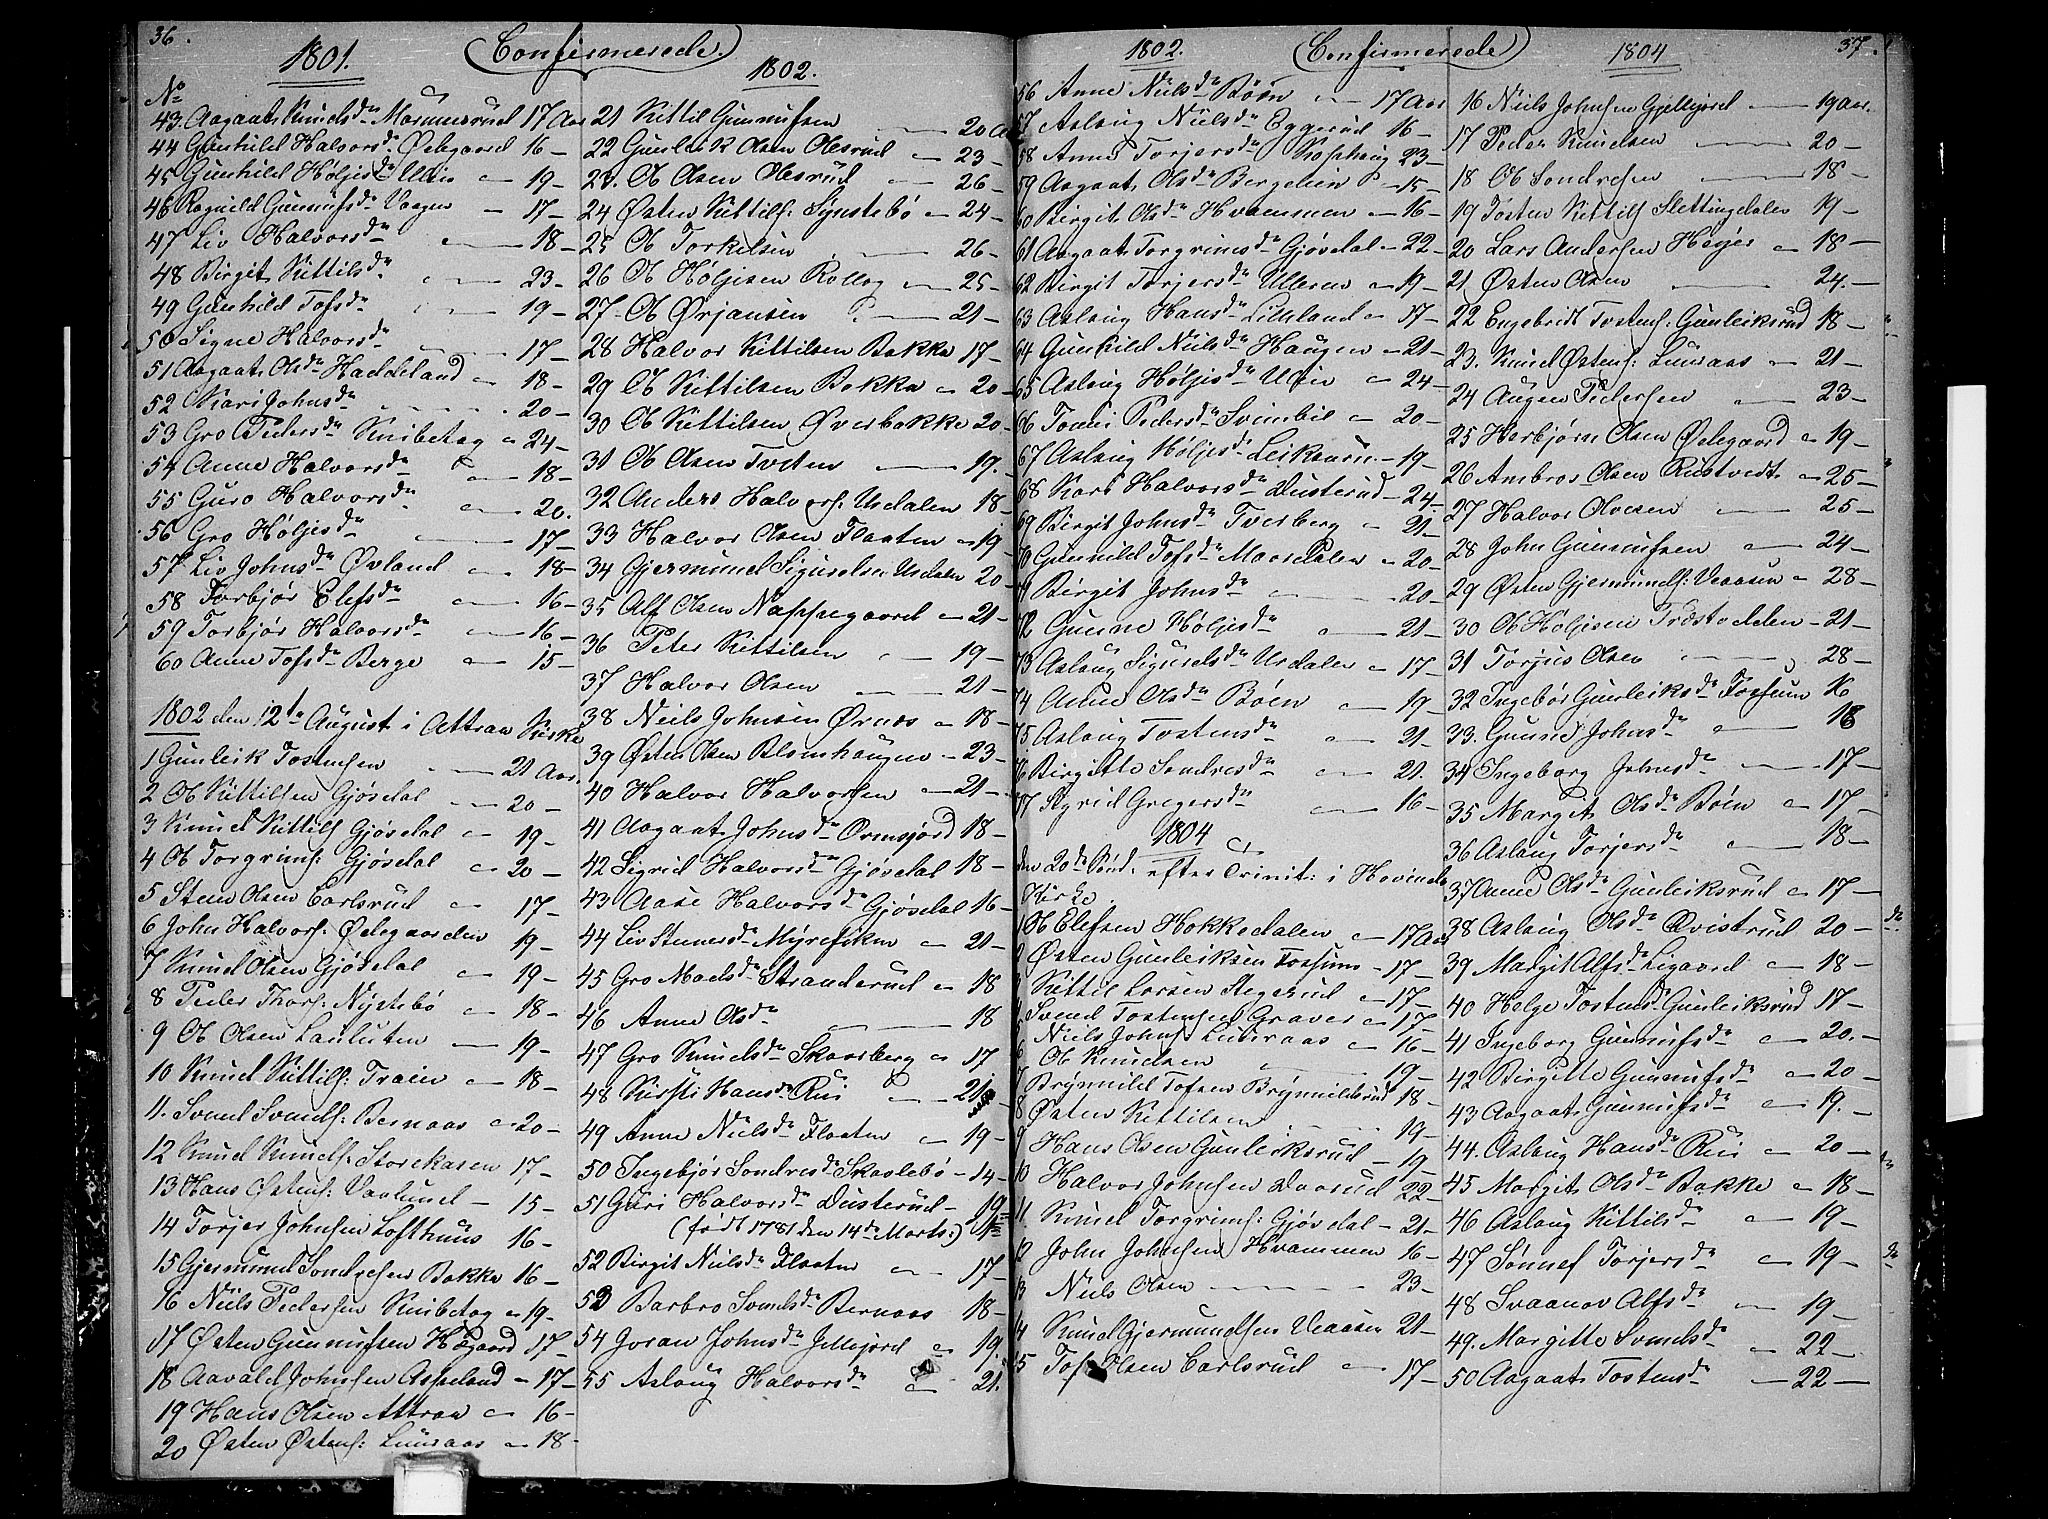 36.
1801. Confirmerede.
No
43. Aagaat Knudsdr 17 Aar
44 Gunhild Halvorsdr Ødegaard 16 —
45 Gunhild Høljesdr Ulvis — 19 —
46 Ragnild Gunnufsdr Vaagen — 17 —
47 Liv Halvorsdr — 18 —
48 Birgit Kittilsdr — 23 —
49 Gunhild Tofsdr — 19 —
50 Signe Halvorsdr — 17 —
51 Aagaat Olsdr Haddeland — 18 —
52 Kari Johnsdr — 20 —
53 Gro Pedersdr — 24 —
54 Anne Halvorsdr — 18 —
55 Guro Halvorsdr — 20.
56 Gro Høljesdr — 17 —
57 Liv Johnsdr Øvland — 18 —
58 Torbjør Elefsdr — 16 —
59 Torbjør Halvorsdr — 16 —
60 Anne Tofsdr Berge — 15 —
1802 den 12te August i Attraa Kirke
1 Gunleik Tostensen — 21 Aar.
2 Ol Kittilsen Gjøsdal — 20 —
3 Knud Kittils Gjøsdal — 19 —
4 Ol Torgrims: Gjøsdal — 20 —
5 Sten Olsen Carlsrud — 17 —
6 John Halvors: Ødegaarden 19 —
7 Knud Olsen Gjøsdal — 19 —
8 Peder Thors: Nystebø — 18 —
9 Ol Olsen — 19 —
10 Knud Kittils: Traen — 18 —
11. Svend Svends: Bernaas — 20 —
12 Knud Knuds: Storekasen 17 —
13 Hans Østens: Vaalund — 15 —
14 Torjer Johnsen Lofthuus 16 —
15 Gjermund Sondresen Bakke 16 —
16 Niels Pedersen — 19 —
17 Østen Gunnufsen Hægaard 17 —
18 Aavald Johnsen Aspeland — 17 —
19 Hans Olsen Attraa — 16 —
20 Østen Østens: Luuraas — 18 —
1802.
21 Kittil Gunnufsen — 20 Aar
22 Gunleik Olsen Olsrud — 23 —
23. Ol Olsen Olsrud — 26 —
24 Østen Kittils: Synstebø — 24 —
25 Ol Torkilsen — 26 —
26 Ol Høljesen Rollag — 25 —
27 Ol Ørjansen — 21 —
28 Halvor Kittilsen Bakke 17 —
29 Ol Kittilsen Bakke — 20 —
30 Ol Kittilsen Øverbakke 20 —
31 Ol Olsen Tveten — 19.
32 Anders Halvors: Urdalen 18 —
33 Halvor Olsen Flaaten — 19 —
34 Gjermund Sigurdsen Urdalen 20 —
35 Alf Olsen Nappegaard — 21 —
36 Peter Kittilsen — 19 —
37 Halvor Olsen — 21 —
38 Niels Johnsen Ørnæs — 18 —
39 Østen Olsen Blomhaugen — 23 —
40 Halvor Halvorsen — 21 —
41 Aagaat Johnsdr Ormsjord 18 —
42 Sigrid Halvorsdr Gjøsdal 18 —
43 Aase Halvorsdr Gjøsdal 16 —
44 Liv Stenersdr — 21 —
45 Gro Madsdr Stranderud — 18
46 Anne Olsdr — 18
47 Gro Knudsdr Skaarberg — 17
48 Kirsti Hansdr Rui — 21
49 Anne Nielsdr Flaaten — 19 —
50 Ingebjør Sondresdr Skaalebø — 14 —
51 Guri Halvorsdr Dusterud — 19
(født 1781 den 14de Marts:)
52 Birgit Nielsdr Flaaten — 17 —
53 Barbro Svendsdr Bernaas 18 —
54 Joran Johnsdr Jellejord — 19.
55 Aslaug Halvorsdr — 21.
1802. Confirmerede
56 Anne Nielsdr Bøen — 17 Aar
57 Aslaug Nielsdr Eggerud 16 —
58 Anne Torjersdr 23 —
59 Aagaat Olsdr Bergelien — 15 —
60 Birgit Olsdr Hvammen — 16 —
61 Aagaat Torgrimsdr Gjøsdal — 22 —
62 Birgit Torjersdr Ulleren — 19 —
63 Aslaug Hansdr — 17 —
64 Gunhild Nielsdr Haugen — 21 —
65 Aslaug Høljesdr — 24 —
66 Tone Pedersdr Svinbil — 20 —
67 Aslaug Høljesdr — 19 —
68 Kari Halvorsdr Dusterud — 24 —
69 Birgit Johnsdr Tverberg — 21 —
70 Gunnild Tofsdr — 20 —
71 Birgit Johnsdr — 20 —
72 Gunne Høljesdr — 21 —
73 Aslaug Sigurdsdr Urdalen — 17 —
74 Anne Olsdr Bøen — 19 —
75 Aslaug Tostensdr — 21 —
76 Birgitte Sondresdr — 21.
77 Sigrid Gregersdr — 16 —
1804
den 20de Sønd: efter Trinit: i Hovinds
Kirke.
1 Ol Elefsen Hokkedalen — 17 Aar
2 Østen Gunleiksen Fossum — 17 —
3 Kittil Larsen — 17 —
4 Svend Tostensen Graver — 17 —
5 Niels Johns: Luuraas — 16 —
6 Ol Knudsen — 19 —
7 Brynnild Tofsen Brynnildsrud 18 —
8 Østen Kittilsen — 19 —
9 Hans Olsen Gunleiksrud — 19 —
10 Halvor Johnsen Daarud 22 —
11 Knud Torgrims: Gjøsdal — 21 —
12 John Johnsen Hvammen 16 —
13 Niels Olsen — 23 —
14 Knud Gjermundsen Veaasen 21 —
15 Tof Olsen Carlsrud — 17 —
1804 37.
16 Niels Johnsen Gjellejord — 19 Aar.
17 Peder Knudsen — 20 —
18 Ol Sondresen — 18 —
19 Tosten Kittils Slettingdalen 19 —
20 Lars Andersen Højer — 18 —
21 Østen Olsen — 24 —
22 Engebridt Tostens: Gunleiksrud 18 —
23. Knud Østens: Luuraas — 21 —
24 Augen Pedersen — 23 —
25 Herbjørn Olsen Ødegaard — 19 —
26 Ambros Olsen Rustvedt — 25 —
27 Halvor Olvesen — 25 —
28 John Gunnufsen — 24 —
29 Østen Gjermunds: Veaasen — 28 —
30 Ol Høljesen Træstodden — 21 —
31 Torjus Olsen — 28 —
32 Ingebør Gunleiksdr Fossum 16
33. Gunne Johnsdr — 18
34 Ingeborg Johnsdr — 17 —
35 Margit Olsdr Bøen — 17 —
36 Aslaug Torjersdr — 18 —
37 Anne Olsdr Gunleiksrud — 17 —
38 Aslaug Olsdr Qvistrud 20 —
39 Margit Alfsdr Ligaard — 18 —
40 Helge Tostensdr Gunleiksrud 17 —
41 Ingeborg Gunnufsdr — 20. —
42 Birgitte Gunnufsdr — 20 —
43 Aagaat Gunnufsdr — 19. —
44. Aslaug Hansdr Rui — 20 —
45 Margit Olsdr Bakke — 18 —
46 Aslaug Kittilsdr — 19 —
47 Sønnef Torjersdr — 19 —
48 Svaanov Alfsdr — 19 —
49. Margitte Svendsdr — 22 —
50 Aagaat Tostensdr — 22 —